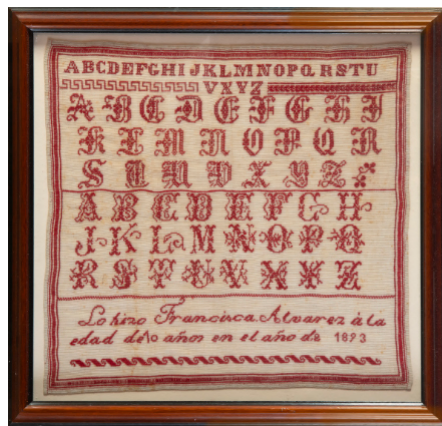 ABCDEFGHIJKLMNOPQRSTU
VXYZ
A B C D E F G H I
K L M N O P Q R
S T U V X Y Z
A B C D E F G H
J K L M N O P Q
R S T U V X Y Z
Lo hizo Francisca Alvarez á la
edad de 10 años en el año de 1893